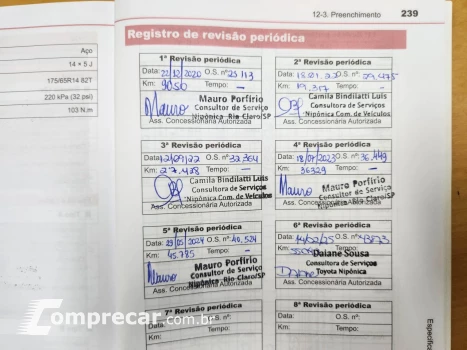 12-3. Preenchimento 239
Registro de revisão periódica
Aço
14 × 5 J
175/65R14 82T
220 kPa (32 psi)
103 N.m
1ª Revisão periódica
Data: 22/12/2020 O.S. nº: 25113
Km: 9056 Tempo: -
Mauro
Mauro Porfirio
Consultor de Serviço
Nipônica - Rio Claro/SP
Ass. Concessionária Autorizada
2ª Revisão periódica
Data: O.S. nº: 29.475
Km: 19.317 Tempo: -
Camila Bindilatti Luis
Consultora de Serviços
Nipônica Com. de Veículos
Ass. Concessionária Autorizada
3ª Revisão periódica
Data: 12/09/22 O.S. nº: 32.364
Km: 27.428 Tempo: -
Camila Bindilatti Luis
Consultora de Serviços
Nipônica Com. de Veículos
Ass. Concessionária Autorizada
4ª Revisão periódica
Data: 18/07/2023 O.S. nº: 36.449
Km: 36329 Tempo: -
Mauro
Mauro Porfirio
Consultor de Serviço
Nipônica - Rio Claro/SP
Ass. Concessionária Autorizada
5ª Revisão periódica
Data: 29/05/2024 O.S. nº: 40.524
Km: 45.785 Tempo: -
Mauro
Mauro Porfirio
Consultor de Serviço
Nipônica - Rio Claro/SP
Ass. Concessionária Autorizada
6ª Revisão periódica
Data: O.S. nº:
Km: Tempo:
Daiane Sousa
Consultora de Serviços
Toyota Nipônica
Ass. Concessionária Autorizada
7ª Revisão periódica
Data: O.S. nº:
Km: Tempo:
8ª Revisão periódica
Data: O.S. nº:
Km: Tempo:
Ass. Concessionária Autorizada
Especific
Comprecar.com.br